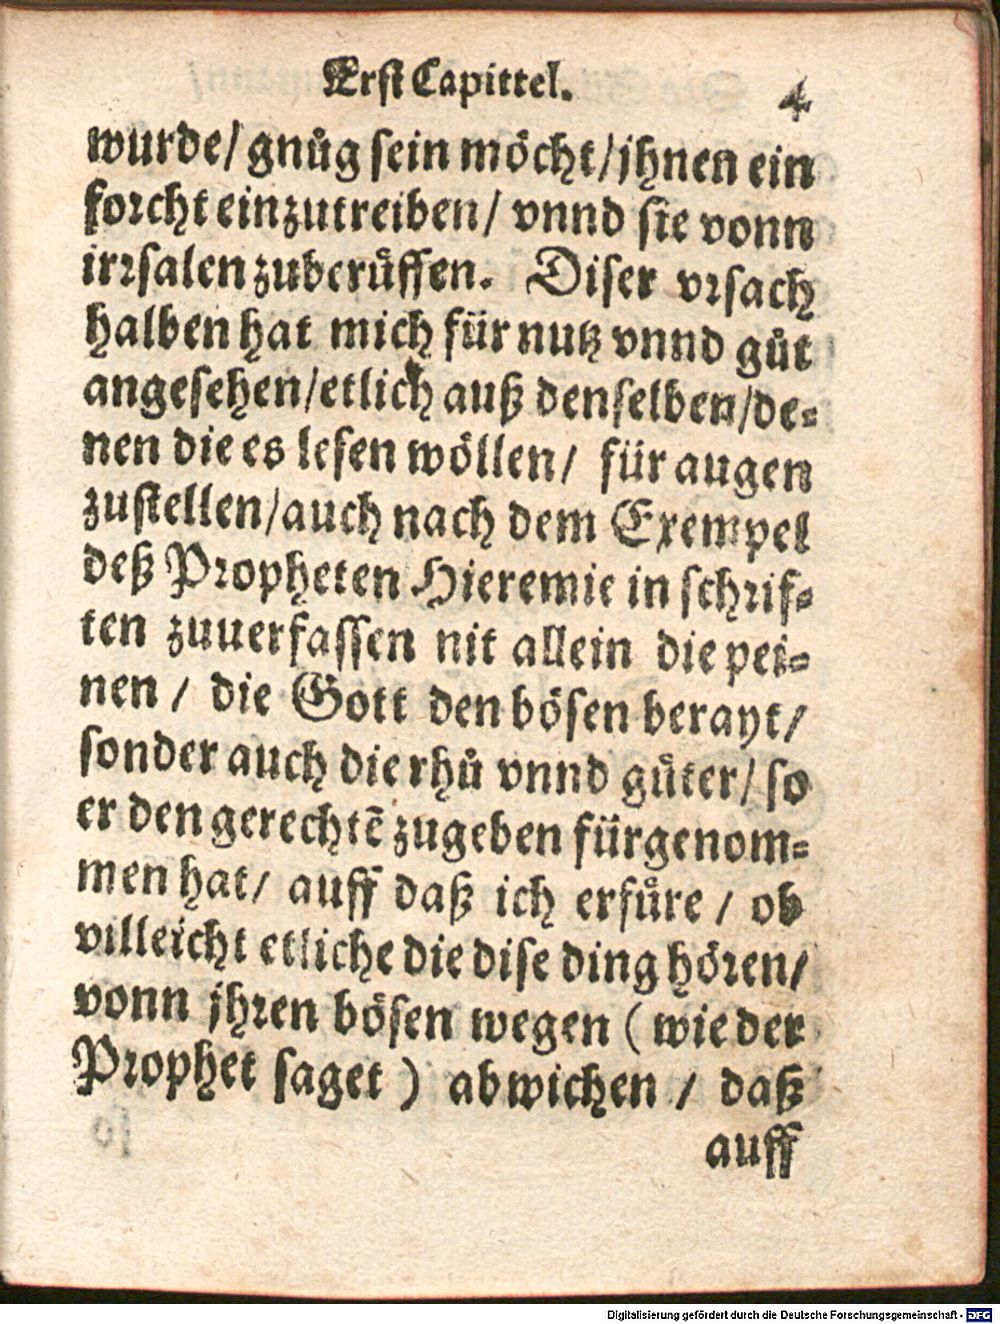 Erst Capittel. 4
wurde/ gnůg sein möcht/ jhnen ein
forcht einzutreiben/ vnnd sie vonn
irrsalen zuberůffen. Diser vrsach
halben hat mich für nutz vnnd gůt
angesehen/ etlich auß denselben/ de-
nen die es lesen wöllen/ für augen
zustellen/ auch nach dem Exempel
deß Propheten Hieremie in schrif-
ten zuuerfassen nit allein die pei-
nen / die Gott den bösen berayt/
sonder auch die rhů vnnd gůter/ so
er den gerechtẽ zugeben fürgenom-
men hat/ auff daß ich erfůre / ob
villeicht etliche die dise ding hören/
vonn jhren bösen wegen ( wie der
Prophet saget ) abwichen / daß
auff
Digitalisierung gefördert durch die Deutsche Forschungsgemeinschaft - DFG